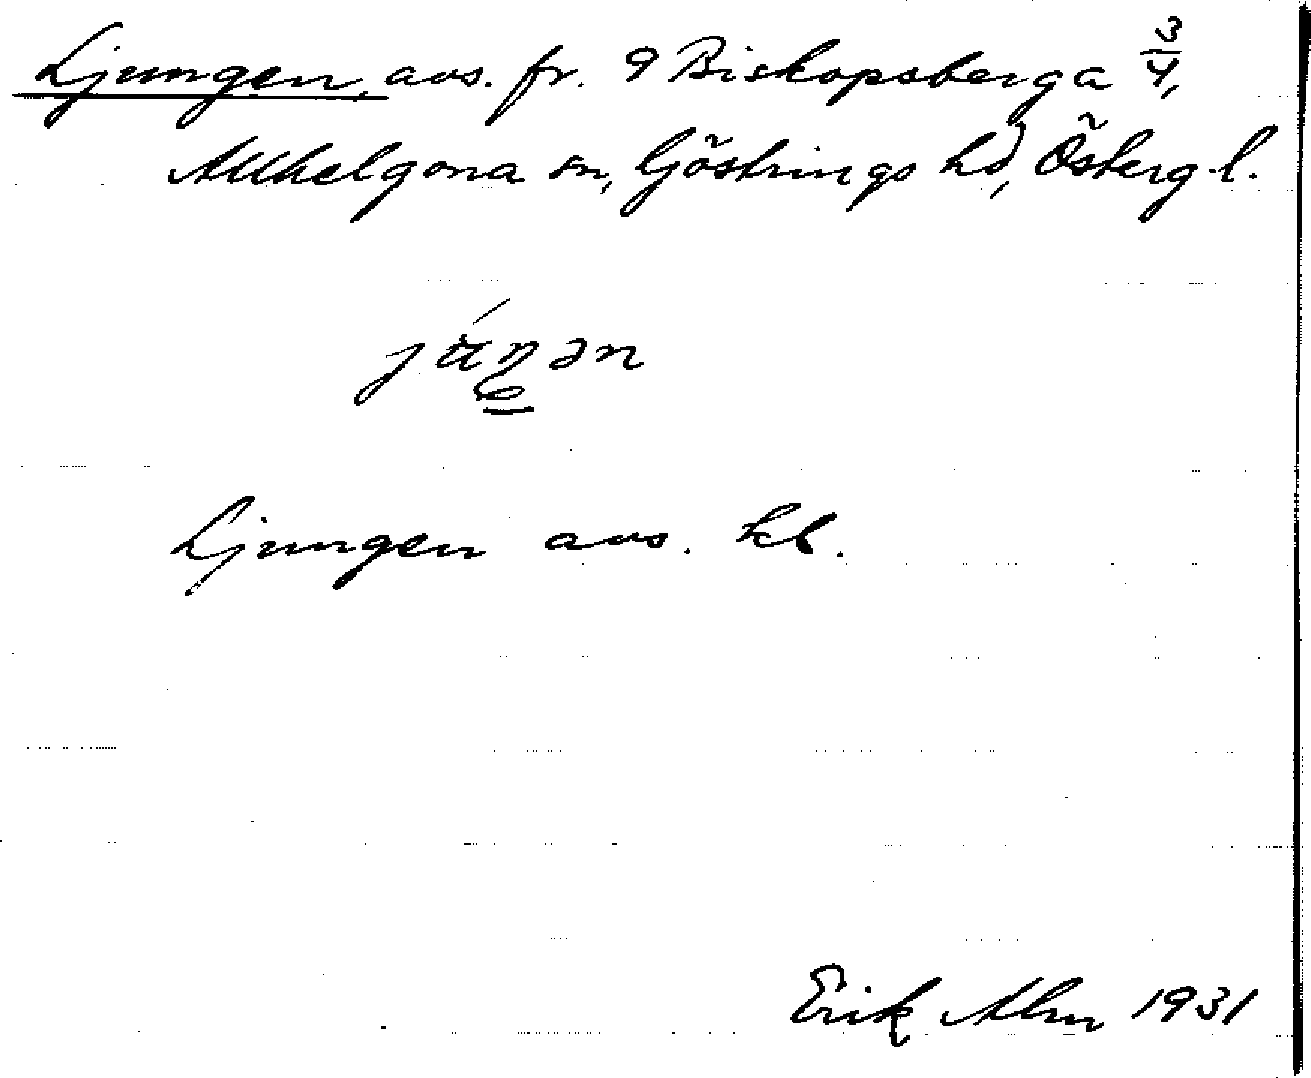 Ljungen, avs. fr. 9 Biskopsberga 3/4,
Allhelgona sn, Göstrings hd, Östergl.
Ljungen avs. kl.
Erik Alm 1931